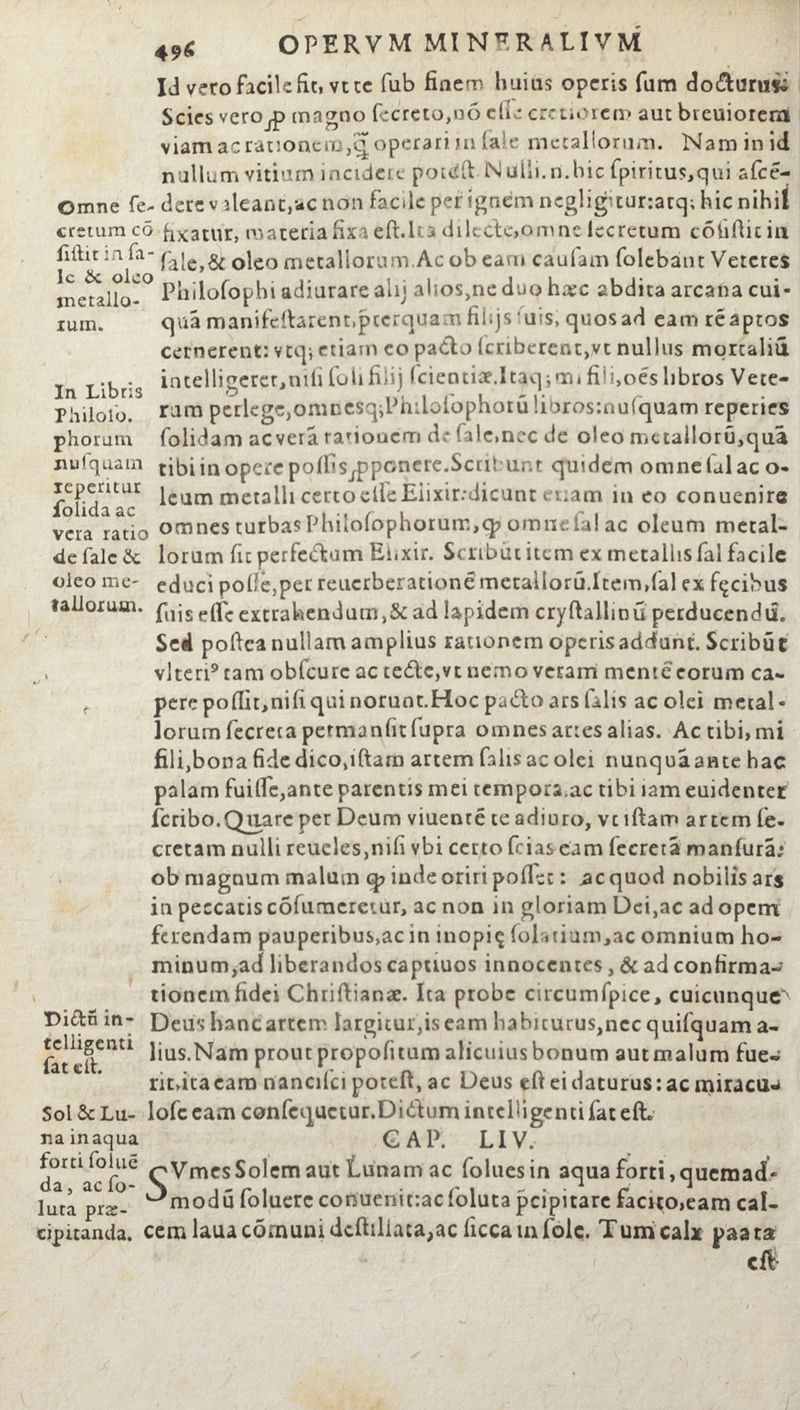 496 OPERVM MINERALIVM
Id vero facile fit, vt te ſub finem huius operis ſum docturus:
Scies vero ꝓ magno ſecreto, nō eſſe certiorem aut breuiorem
viam ac rationem, q̃ operari in ſale metallorum. Nam in id
nullum vitium incidere poteſt. Nulli.n.hic ſpiritus, qui aſcē-
dere valeant, ac non facile per ignem negligitur: atq; hic nihil
fixatur, materia fixa eſt. Ita dilecte, omne ſecretum cōſiſtit in
ſale, & oleo metallorum. Ac ob eam cauſam ſolebant Veteres
Philoſophi adiurare alij alios, ne duo hæc abdita arcana cui-
quā manifeſtarent, p̄terquam filijs ſuis, quos ad eam rē aptos
cernerent: vtq; etiam eo pacto ſcriberent, vt nullus mortaliū
intelligeret, niſi ſoli filij ſcientiæ. Itaq; mi fili, oēs libros Vete-
rum perlege, omnesq; Philoſophorū libros: nuſquam reperies
ſolidam ac verā rationem de ſale, nec de oleo metallorū, quā
tibi in opere poſſis ꝓponere. Scribunt quidem omne ſal ac o-
leum metalli certo eſſe Elixir: dicunt etiam in eo conuenire
omnes turbas Philoſophorum, ꝙ omne ſal ac oleum metal-
lorum ſit perfectum Elixir. Scribūt item ex metallis ſal facile
educi poſſe, per reuerberationē metallorū. Item, ſal ex fęcibus
ſuis eſſe extrahendum, & ad lapidem cryſtallinū perducendū.
Sed poſtea nullam amplius rationem operis addunt. Scribūt
vlteriꝰ tam obſcure ac tecte, vt nemo veram mentē eorum ca-
pere poſſit, niſi qui norunt. Hoc pacto ars ſalis ac olei metal-
lorum ſecreta permanſit ſupra omnes artes alias. Ac tibi, mi
fili, bona fide dico, iſtam artem ſalis ac olei nunquā ante hac
palam fuiſſe, ante parentis mei tempora, ac tibi iam euidenter
ſcribo. Quare per Deum viuentē te adiuro, vt iſtam artem ſe-
cretam nulli reueles, niſi vbi certo ſcias eam ſecretā manſurā:
ob magnum malum ꝙ inde oriri poſſet: ac quod nobilis ars
in peccatis cōſumeretur, ac non in gloriam Dei, ac ad opem
ferendam pauperibus, ac in inopię ſolatium, ac omnium ho-
minum, ad liberandos captiuos innocentes, & ad confirma-
tionem fidei Chriſtianæ. Ita probe circumſpice, cuicunque
Deus hanc artem largitur, is eam habiturus, nec quiſquam a-
lius. Nam prout propoſitum alicuius bonum aut malum fue-
rit, ita eam nanciſci poteſt, ac Deus eſt ei daturus: ac miracu-
loſe eam conſequetur. Dictum intelligenti ſat eſt.
CAP. LIV.
SVmes Solem aut Lunam ac ſolues in aqua forti, quemad-
modū ſoluere conuenit: ac ſoluta p̄cipitare facito, eam cal-
cem laua cōmuni deſtillata, ac ſicca in ſole. Tum calx paata
eſt
Omne ſe-
cretum cō
ſiſtit in ſa-
le & oleo
metallo-
rum.
In Libris
Philoſo-
phorum
nuſquam
reperitur
ſolida ac
vera ratio
de ſale &
oleo me-
tallorum.
Dictū in-
telligenti
ſat eſt.
Sol & Lu-
na in aqua
forti ſoluē
da, ac ſo-
luta præ-
cipitanda.